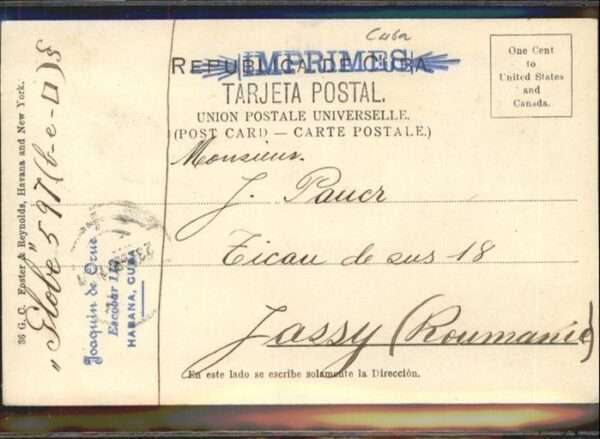 Cuba
REPUBLICA DE CUBA
IMPRIMES
TARJETA POSTAL.
UNION POSTALE UNIVERSELLE.
(POST CARD — CARTE POSTALE.)
One Cent
to
United States
and
Canada.
Monsieur.
J. Pauer
Ticau de sus 18
Jassy (Roumanie)
En este lado se escribe solamente la Dirección.
36 G. C. Foster & Reynolds, Havana and New York.
"Globe" 597 (b-e-
Joaquin de Orue
Escobar 112
HABANA, CUBA